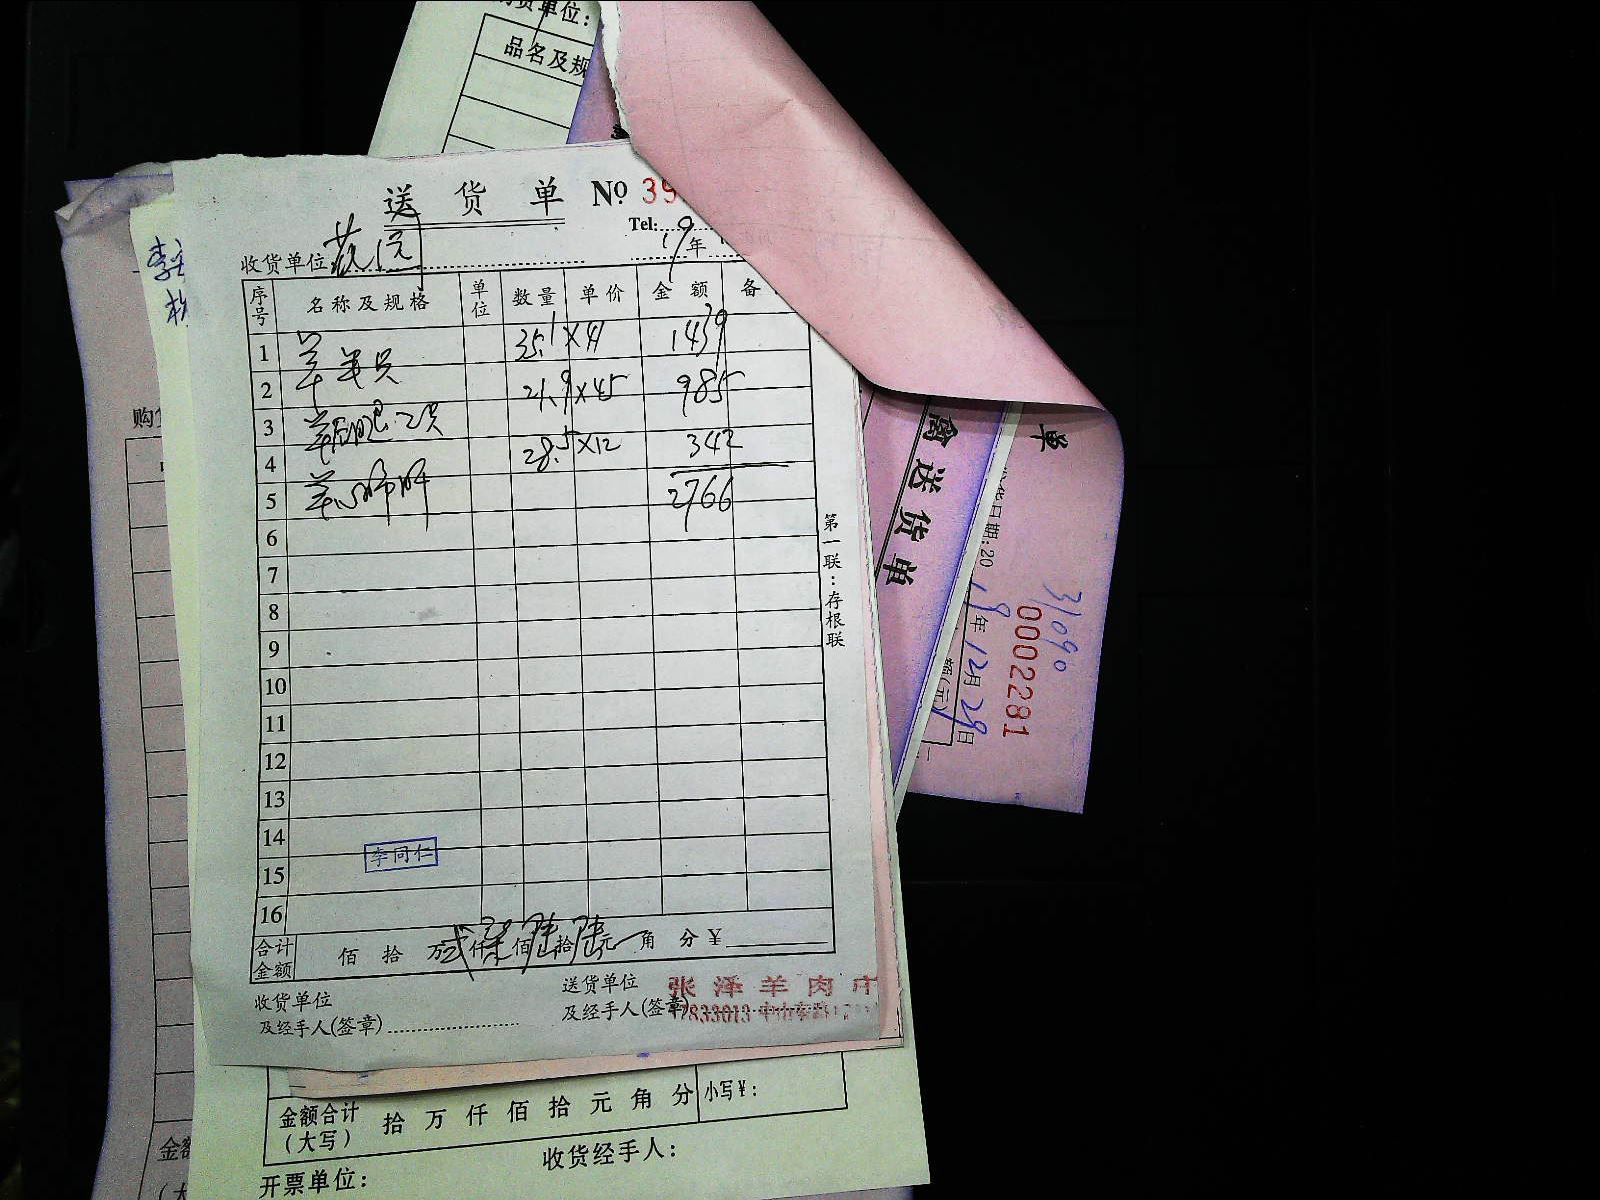 货单位:
品名及规
送 货 单 № 39
Tel:
19年
收货单位
序号 名称及规格 单位 数量 单价 金额 备
1 35.1×41 1439
2 羊 21.9×45 985
3 羊后腿 28.5×12 342
4
5 羊心 2766
6
7
8
9
10
11
12
13
14
15
16
李同仁
合计金额 佰 拾 万 贰 仟 柒 佰 陆 拾 陆 元 角 分 ¥
收货单位
及经手人(签章)
送货单位
及经手人(签章)
张泽羊肉
7833013 中山东路
第一联:存根联
购
金额
金额合计
(大写)
拾 万 仟 佰 拾 元 角 分 小写¥:
收货经手人:
开票单位:
禽送货单
单
货日期:2019年12月29日
0002281
31090
额(元)